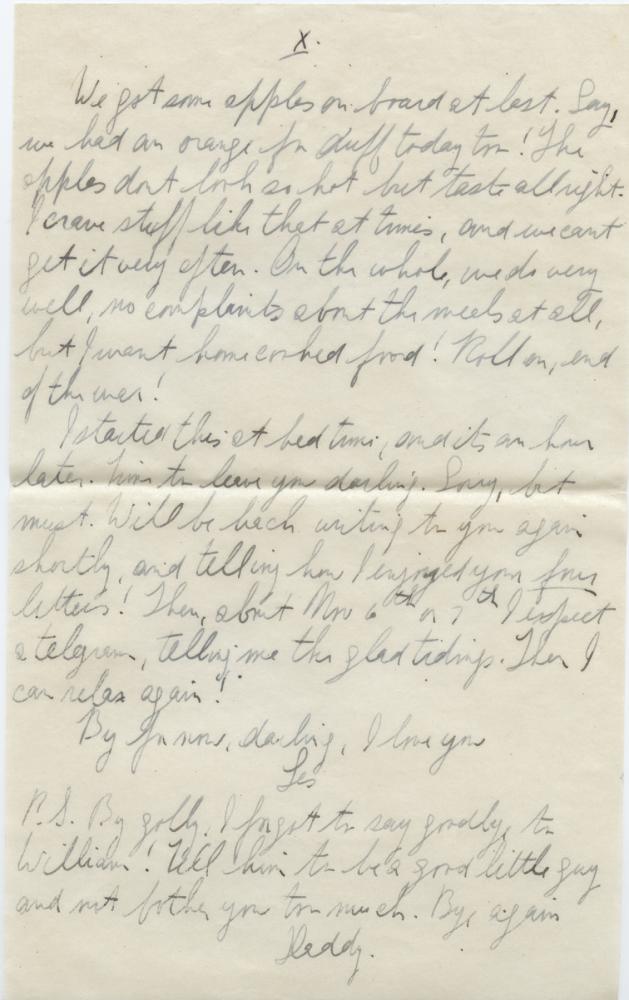 X.
We got some apples on board at last. Say,
we had an orange for duff today too! The
apples dont look so hot but taste allright.
I crave stuff like that at times, and we cant
get it very often. On the whole, we do very
well, no complaints about the meals at all,
but I want home cooked food! Roll on, end
of the war!
I started this at bed time, and its an hour
later. Time to leave you darling. Sorry, but
must. Will be back writing to you again
shortly, and telling how I enjoyed your four
letters! Then, about Nov 6th or 7th I expect
a telgram, telling me the glad tidings. Then I
can relax again!
By for now, darling, I love you
Les
P.S. By golly, I forgot to say goodby to
William! Tell him to be a good little guy
and not bother you too much. Bye again
Daddy.